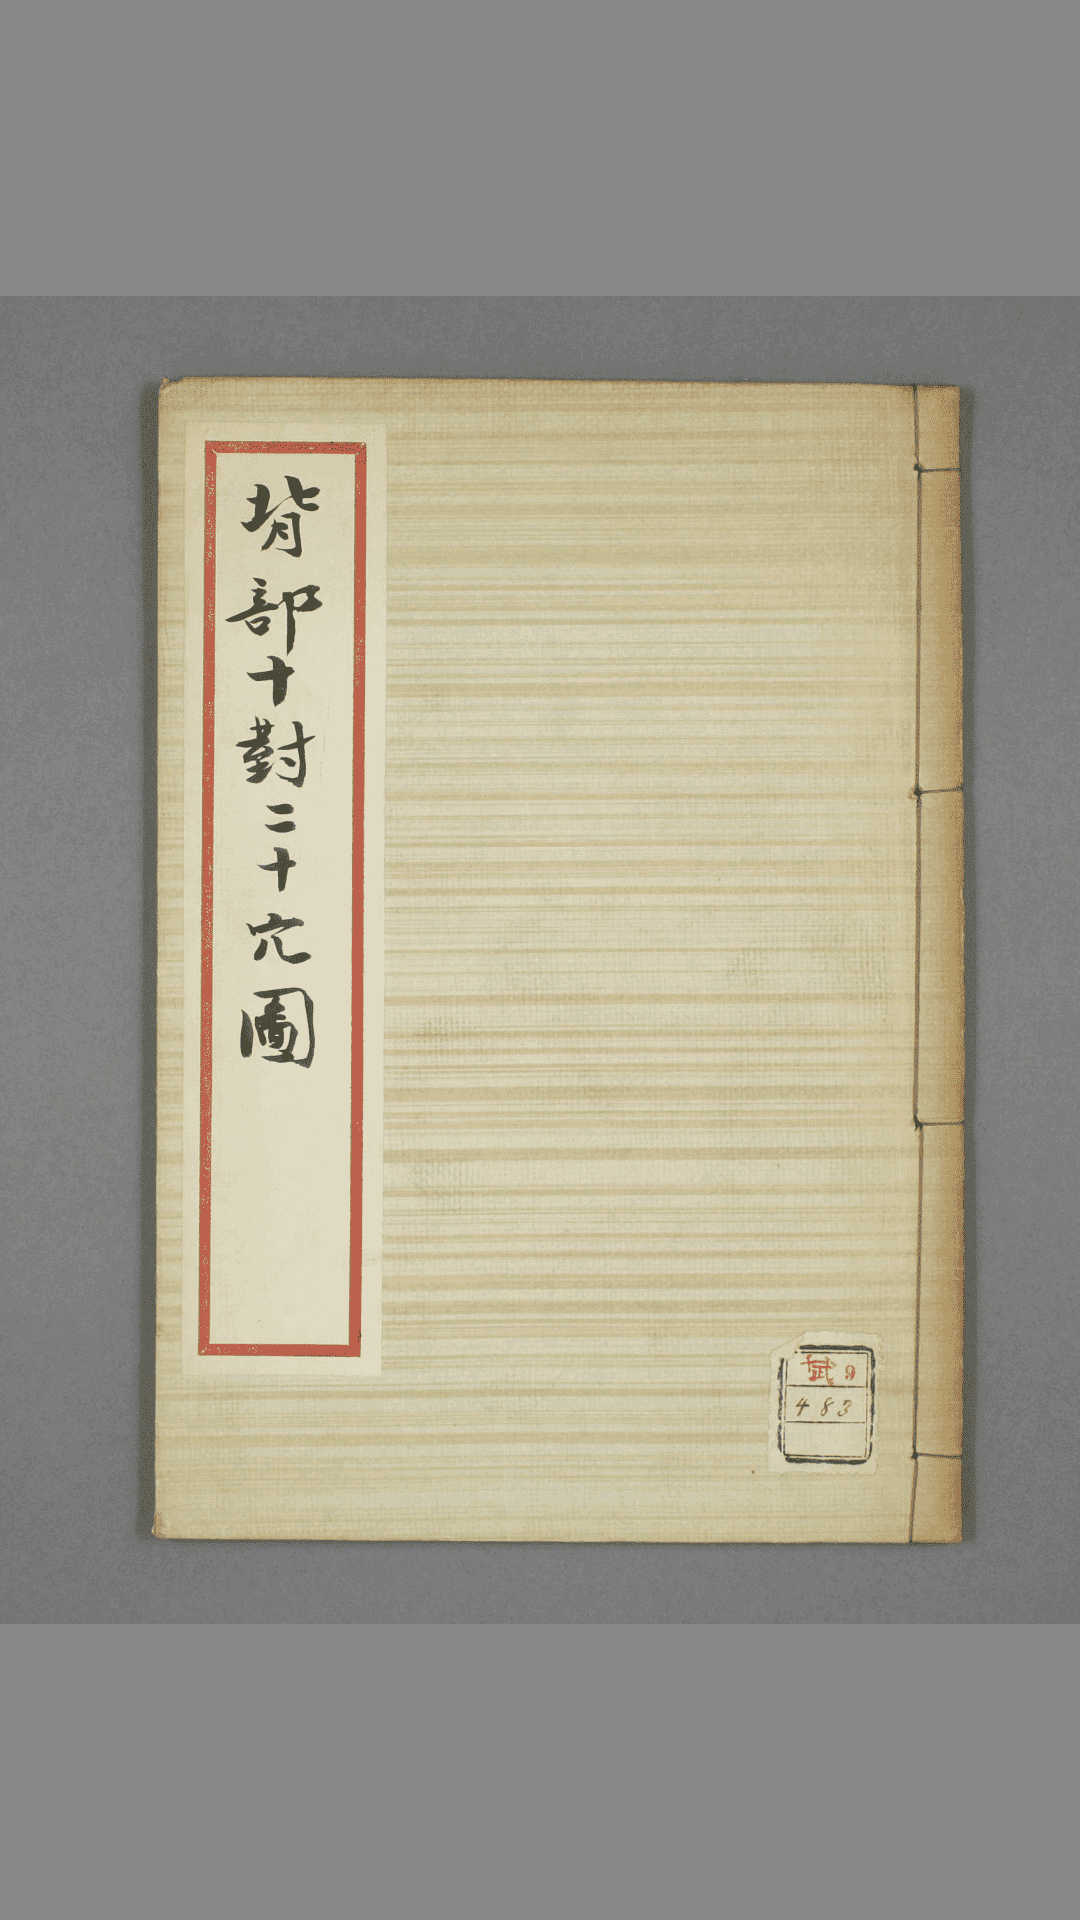 背部十對二十穴圖
9
483